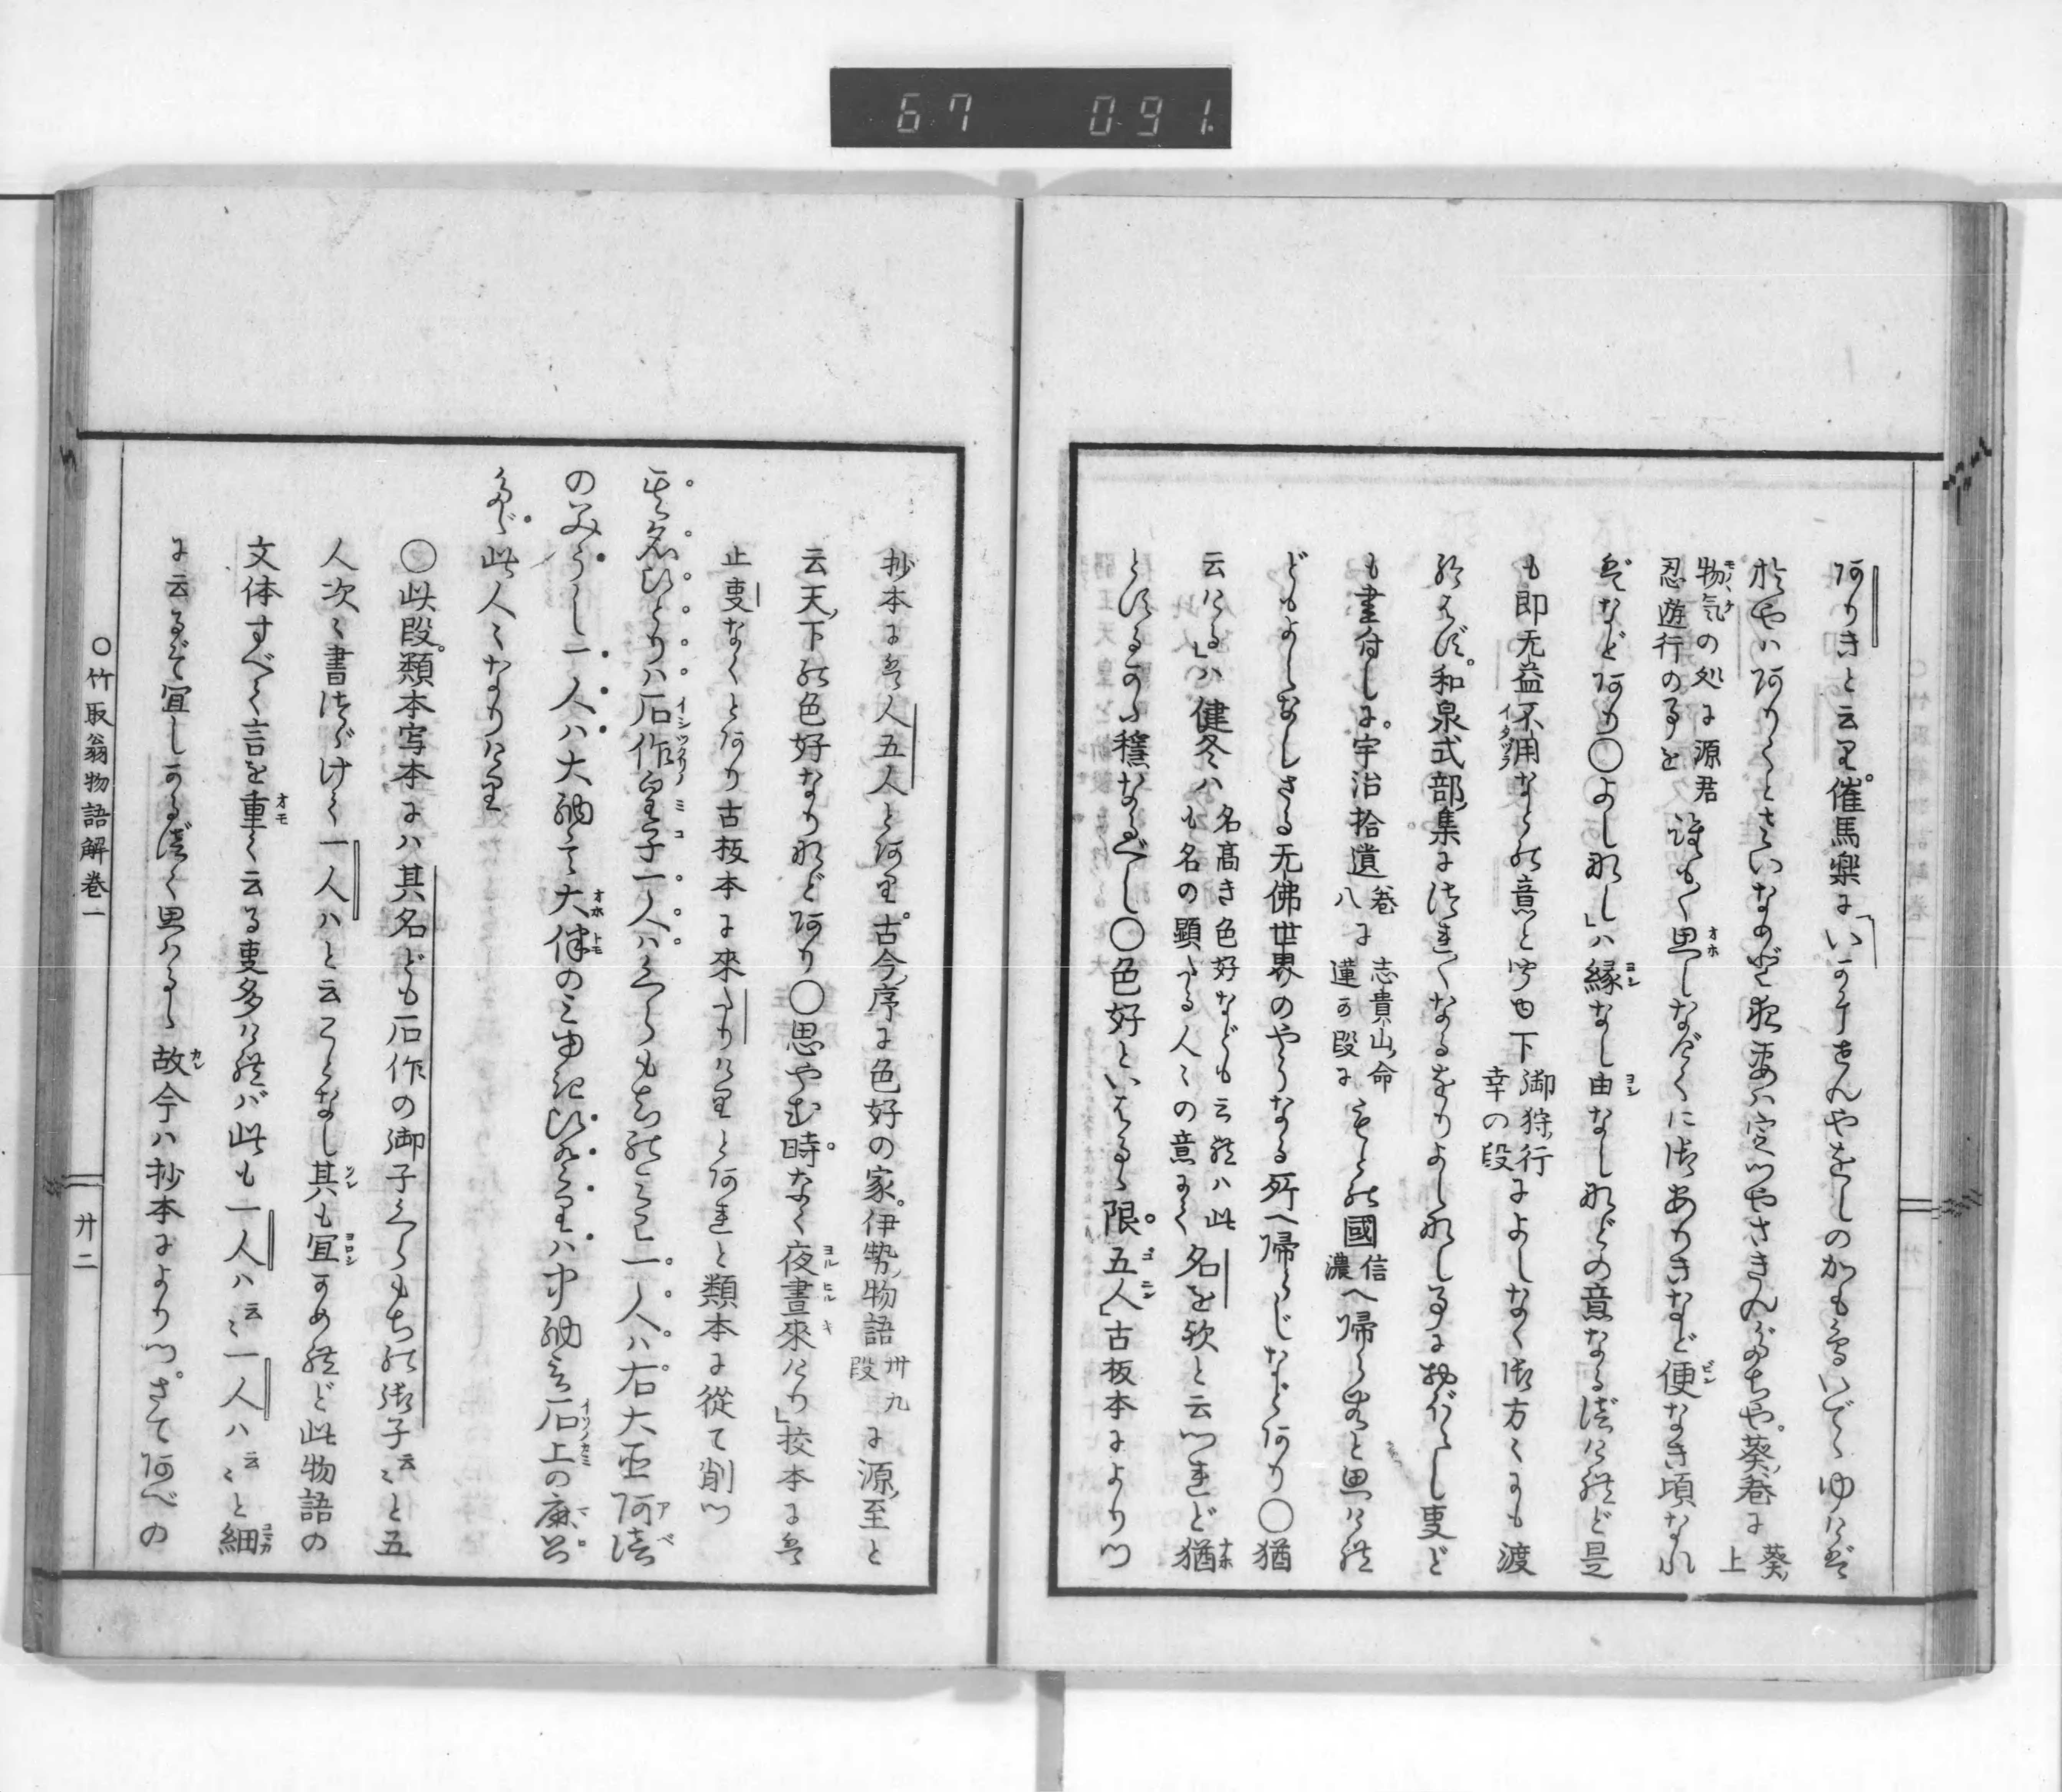 67 091
ありきと云り。催馬楽に「いかにせんやをしのかも鳥いでゝゆけば
おやハありくとさいなめど夜妻ハ定めつやさきんだちや。葵巻に葵上
物気の処に源君忍遊行の事を 誰も〳〵思しなげくに御ありきなど便なき頃なれ
ばなどあり〇よしなし」ハ縁なし由なしなどの意なる漢けれど是
も即无益不用などの意と聞ゆ下御狩行幸の段によしなく御方〳〵にも渡
給はず。和泉式部集につれ〴〵なるをりよしなし事におぼえし事ど
も書付しに。宇治拾遺巻八に志貴山命蓮の段にもとの國信濃へ帰らむと思けれ
どもよしなしさる无佛世界のやうなる所へ帰らじなどあり〇猶
云ける」ハ健冬ハ名高き色好なども云れハ此も名の顕たる人々の意にて名を欤と云つれど猶
とはるかた穏なるべし〇色好といはるゝ限。五人」古板本によりつ
抄本には人五人とあり。古今序に色好の家。伊勢物語卅九段に源至と
云天下の色好なりなどあり〇思やむ時なく夜晝來けり」挍本には
止事なくとあり古板本に來たりけりとあれど類本に從て削つ
其名ひとりハ石作皇子一人ハくらもちのみこ一人ハ右大臣阿倍
のみうし一人ハ大納言大伴のみゆきひとりハ中納言石上の麻呂
たゞ此人々なりけり
〇此段。類本写本にハ其名ども石作の御子くらもちの御子云々と五
人次々書つゞけて一人ハと云ことなし其も宜かめれど此物語の
文体すべて言を重て云る事多けれバ此も一人ハ云々一人ハ云々と細
に云るぞ宜しかる漢く思はるゝ故今ハ抄本によりつ。さてあべの
〇竹取翁物語解巻一
廿二